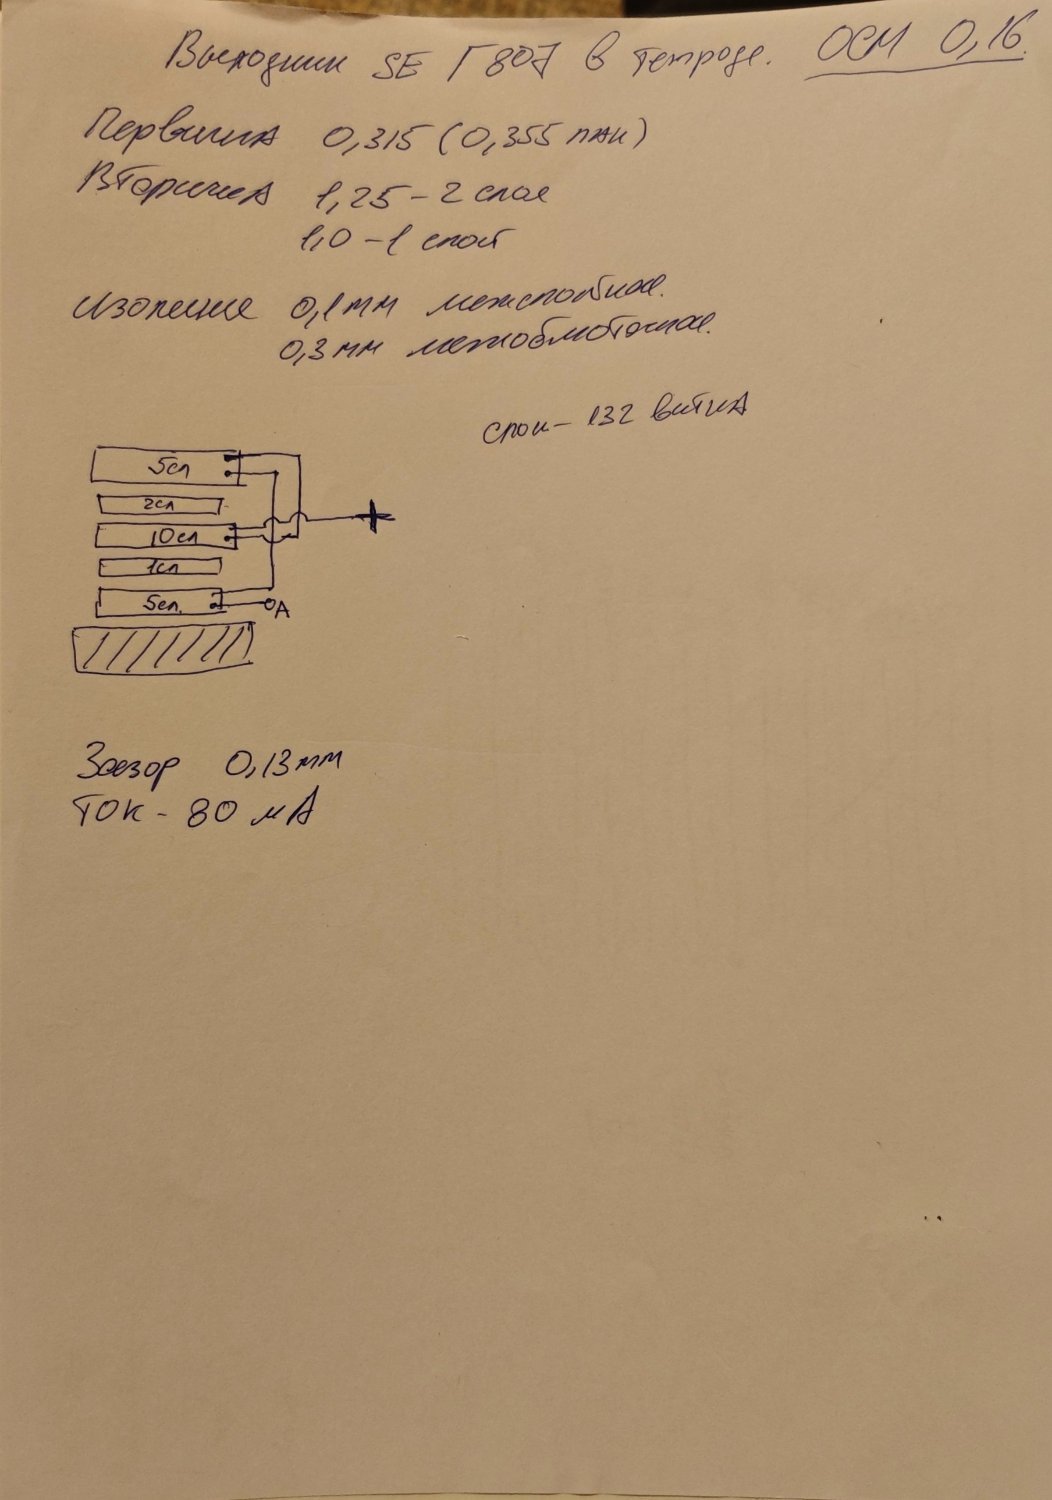 Выходники SE Г807 в тетроде. ОСМ 0,16
Первичка 0,315 (0,355 лак)
Вторичка 1,25 - 2 слоя
1,0 - 1 слой
Изоляция 0,1 мм межслойная.
0,3 мм межобмоточная.
слои - 132 витка
5сл
2сл
+
10сл
1сл
5сл.
А
Зазор 0,13 мм
ТОК - 80 мА